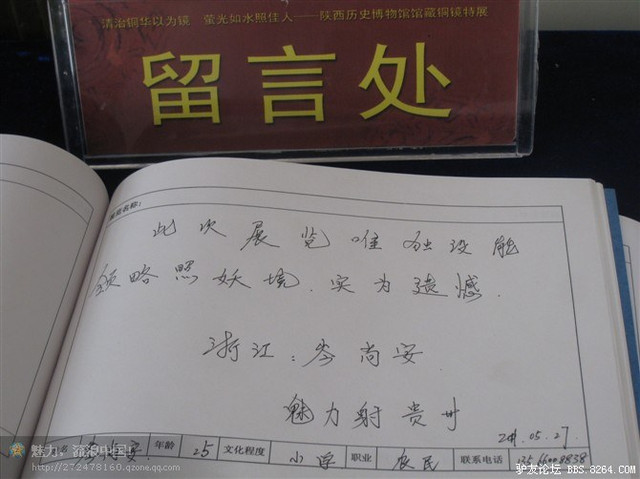 清冶铜华以为镜 莹光如水照佳人——陕西历史博物馆馆藏铜镜特展
留言处
展览名称:
此次展览唯独没能
领略照妖境.实为遗憾.
浙江:岑尚安
魅力射贵州
05.27.
岑尚安 年龄 25 文化程度 小学 职业 农民 联系电话
魅力,猫浪中国户
http://272478160.qzone.qq.com
驴友论坛 BBS.8264.com